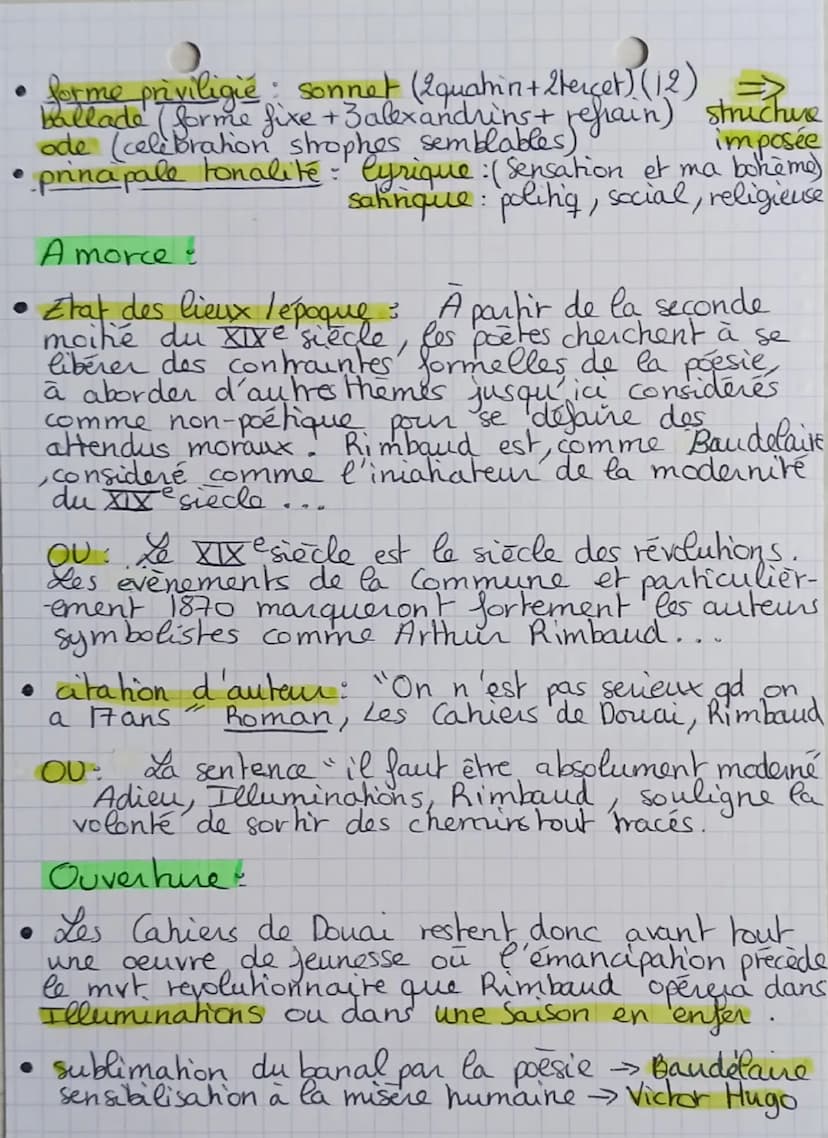 • forme priviligié : sonnet (2quatrin+2tercet)(12) =>
ballade (forme fixe+3alexandrins+ refrain) structure
ode (celibration strophes semblables) imposée
• principale tonalité : lyrique :(Sensation et ma bohème)
satirique : politiq, social, religieuse
Amorce :
• Etat des lieux /époque : À partir de la seconde
moitié du XIXe siècle, les poètes cherchent à se
libérer des contraintes formelles de la poésie,
à aborder d'autres thèmes jusqu'ici considérés
comme non-poétique pour se défaire des
attendus moraux. Rimbaud est, comme Baudelaire
, consideré comme l'iniatiateur de la modernité
du XIXe siècle ...
OU : Le XIXe siècle est le siècle des révolutions.
Les evènements de la Commune et particulièr-
-ement 1870 marqueront fortement les auteurs
symbolistes comme Arthur Rimbaud...
• citation d'auteur : "On n'est pas serieux qd on
a 17ans" Roman, Les Cahiers de Douai, Rimbaud
OU : La sentence "il faut être absolument moderne"
Adieu, Illuminations, Rimbaud, souligne la
volonté de sortir des chemins tout tracés.
Ouverture :
• Les Cahiers de Douai restent donc avant tout
une oeuvre de jeunesse où l'émancipation précède
le mvt revolutionnaire que Rimbaud opérera dans
Illuminations ou dans une Saison en enfer.
• sublimation du banal par la poèsie → Baudélaire
sensibilisation à la misère humaine → Victor Hugo